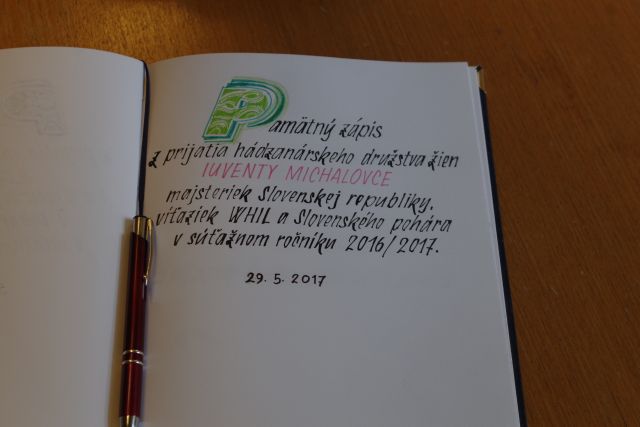 Pamätný zápis
z prijatia hádzanárskeho družstva žien
IUVENTY MICHALOVCE
majsteriek Slovenskej republiky,
víťaziek WHIL a Slovenského pohára
v súťažnom ročníku 2016/2017.
29. 5. 2017